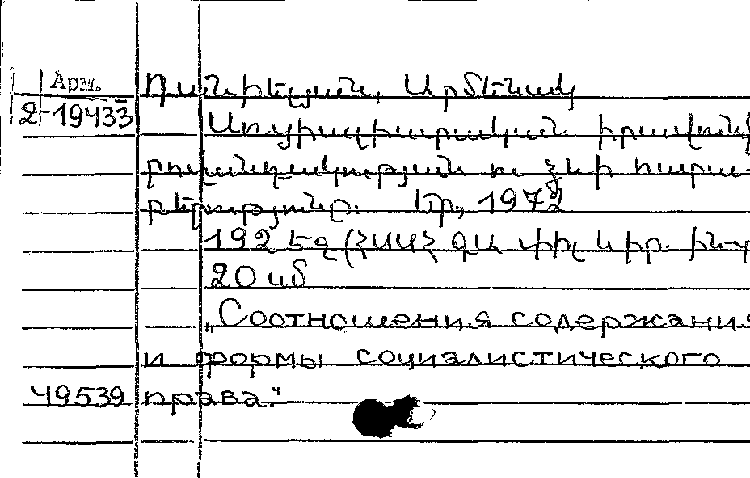 Арм.
2-19433
Դանիելյան, Արմենակ
Սոցիալիստական իրավունքի
բովանդակության ու ձևի հարա-
բերությունը. Եր., 1972
192 էջ (ՀՍՍՀ ԳԱ փիլ. և իր. ին-տ)
20 սմ
„Соотношения содержания
и формы социалистического
49539 права."